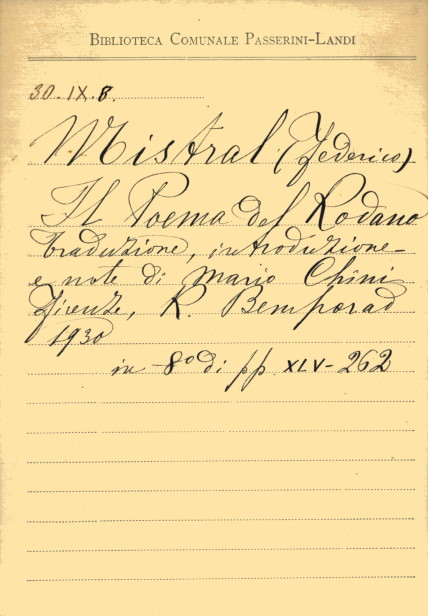 BIBLIOTECA COMUNALE PASSERINI-LANDI
30. IX. 8.
Mistral (Federico)
Il Poema del Rodano
traduzione, introduzione
e note di Mario Chini
Firenze, R. Bemporad
1930
in-8° di pp. XLV-262